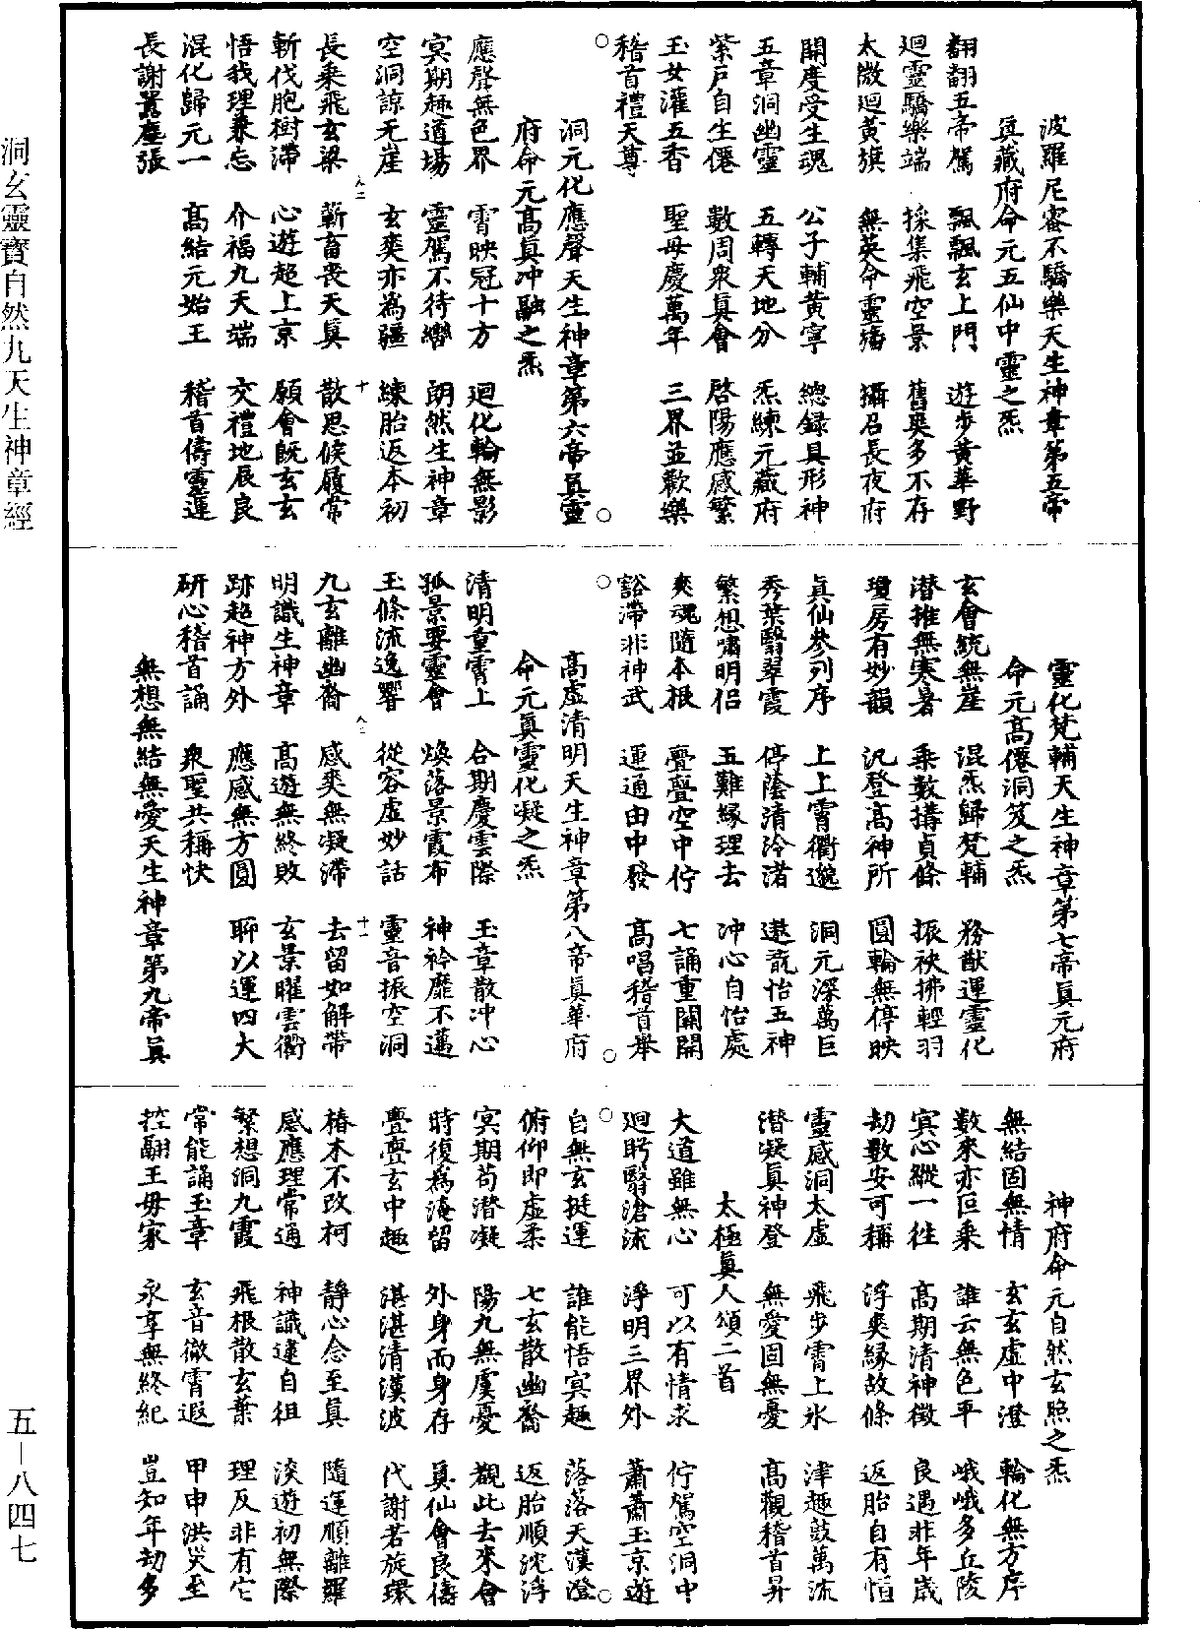 洞玄靈寶自然九天生神章經
波羅尼蜜不驕樂天生神章第五帝
真藏府命元五仙中靈之炁
翻翻五帝駕　飄飄玄上門　遊步黃華野
迴靈驕樂端　採集飛空景　舊爽多不存
太微迴黃旗　無英命靈旛　攝召長夜府
開度受生魂　公子輔黃寧　總錄具形神
五章洞幽靈　五轉天地分　炁練元藏府
紫戶自生僊　數周衆真會　啓陽應感繁
玉女灌五香　聖母慶萬年　三界並歡樂
稽首禮天尊
洞元化應聲天生神章第六帝真靈
府命元高真沖融之炁
應聲無色界　霄映冠十方　迴化輪無影
冥期趣道場　靈駕不待轡　朗然生神章
空洞諒无崖　玄爽亦為疆　練胎返本初
長乘飛玄梁　蘄畜喪天真　散思候履常
斬伐胞樹滯　心遊超上京　願會既玄玄
悟我理兼忘　介福九天端　交禮地辰良
混化歸元一　高結元始王　稽首儔靈運
長謝囂塵張
靈化梵輔天生神章第七帝真元府
命元高僊洞笈之炁
玄會統無崖　混炁歸梵輔　務猷運靈化
潛推無寒暑　乘數構貞條　振袂拂輕羽
瓊房有妙韻　汎登高神所　圓輪無停映
真仙參列序　上上霄衢邈　洞元深萬巨
秀葉翳翠霞　停蔭清泠渚　遨翫怡五神
繁想嘯明侶　五難緣理去　冲心自怡處
爽魂隨本根　亹亹空中佇　七誦重關開
豁滯非神武　運通由中發　高唱稽首舉
高虛清明天生神章第八帝真華府
命元真靈化凝之炁
清明重霄上　合期慶雲際　玉章散冲心
孤景要靈會　煥落景霞布　神衿靡不邁
玉條流逸響　從容虛妙話　靈音振空洞
九玄離幽裔　感爽無凝滯　去留如解帶
明識生神章　高遊無終敗　玄景曜雲衢
跡超神方外　應感無方圓　聊以運四大
研心稽首誦　衆聖共稱快
無想無結無愛天生神章第九帝真
神府命元自然玄照之炁
無結固無情　玄玄虛中澄　輪化無方序
數來亦叵乘　誰云無色平　峨峨多丘陵
冥心縱一往　高期清神徵　良遇非年歲
劫數安可稱　浮爽緣故條　返胎自有恒
靈感洞太虛　飛步霄上氷　津趣鼓萬流
潛凝真神登　無愛固無憂　高觀稽首昇
太極真人頌二首
大道雖無心　可以有情求　佇駕空洞中
迴眄翳滄流　淨明三界外　蕭蕭玉京遊
自無玄挺運　誰能悟冥趣　落落天漢澄
俯仰即虛柔　七玄散幽裔　返胎順沈浮
冥期苟潛凝　陽九無虞憂　覩此去來會
時復為淹留　外身而身存　真仙會良儔
亹亹玄中趣　湛湛清漢波　代謝若旋環
椿木不改柯　靜心念至真　隨運順離羅
感應理常通　神識逮自徂　淡遊初無際
繁想洞九霞　飛根散玄葉　理反非有它
常能誦玉章　玄音徹霄遐　甲申洪災至
控翮王母家　永享無終紀　豈知年劫多
五—八四七